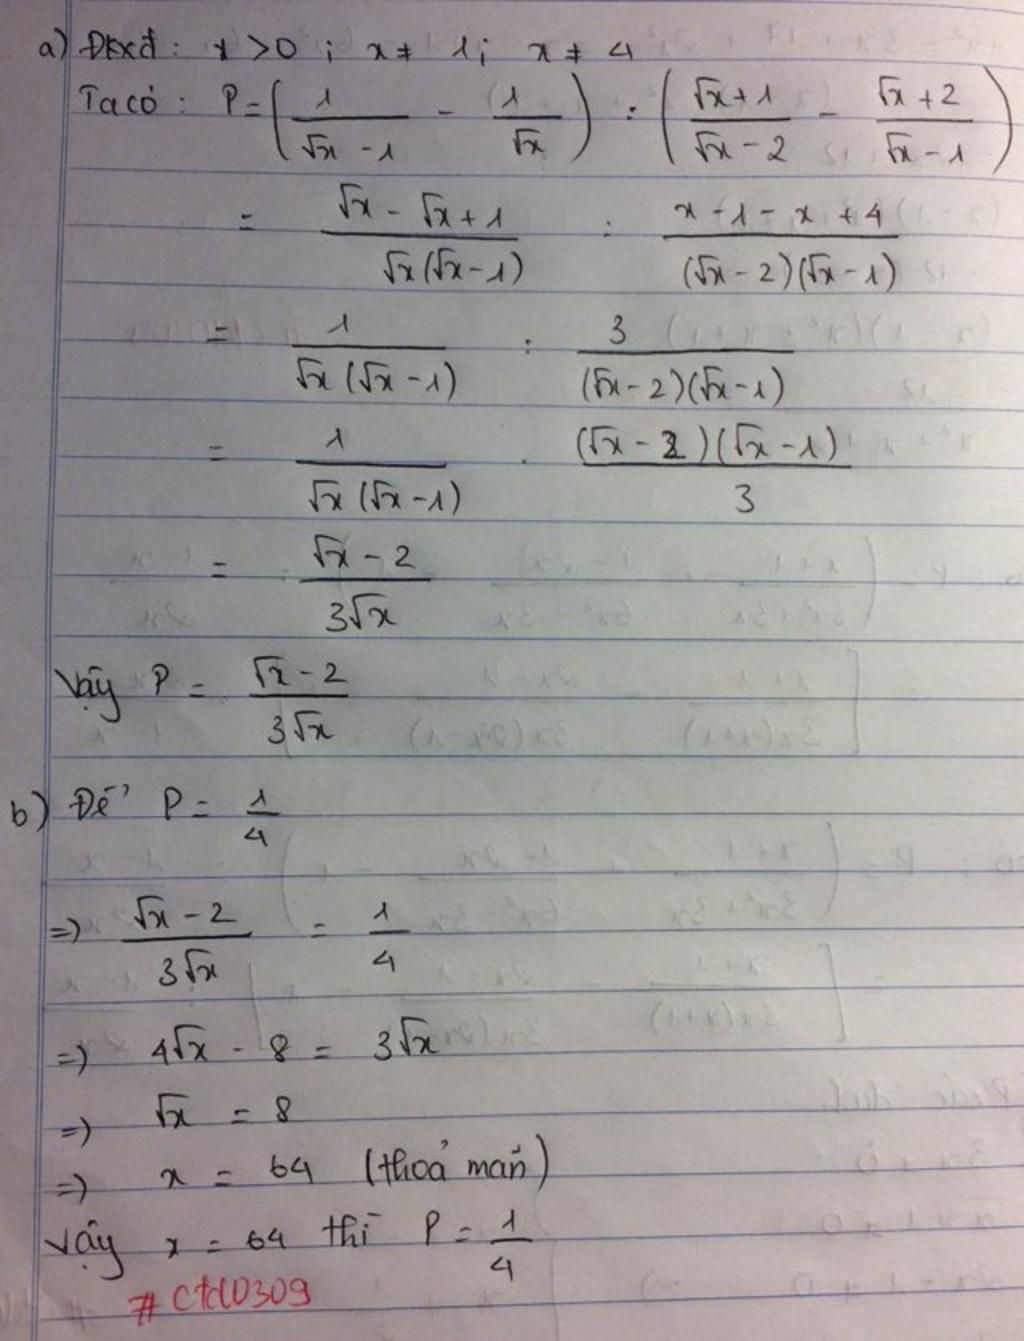 a) Đkxđ: x > 0 ; x ≠ 1 ; x ≠ 4
Ta có : P = ( 1/(√x - 1) - 1/√x ) : ( (√x + 1)/(√x - 2) - (√x + 2)/(√x - 1) )
= (√x - √x + 1)/(√x(√x - 1)) : (x - 1 - x + 4)/((√x - 2)(√x - 1))
= 1/(√x(√x - 1)) : 3/((√x - 2)(√x - 1))
= 1/(√x(√x - 1)) . ((√x - 2)(√x - 1))/3
= (√x - 2)/(3√x)
Vậy P = (√x - 2)/(3√x)
b) Để P = 1/4
=> (√x - 2)/(3√x) = 1/4
=> 4√x - 8 = 3√x
=> √x = 8
=> x = 64 (thoả mãn)
Vậy x = 64 thì P = 1/4
# ctcl0309